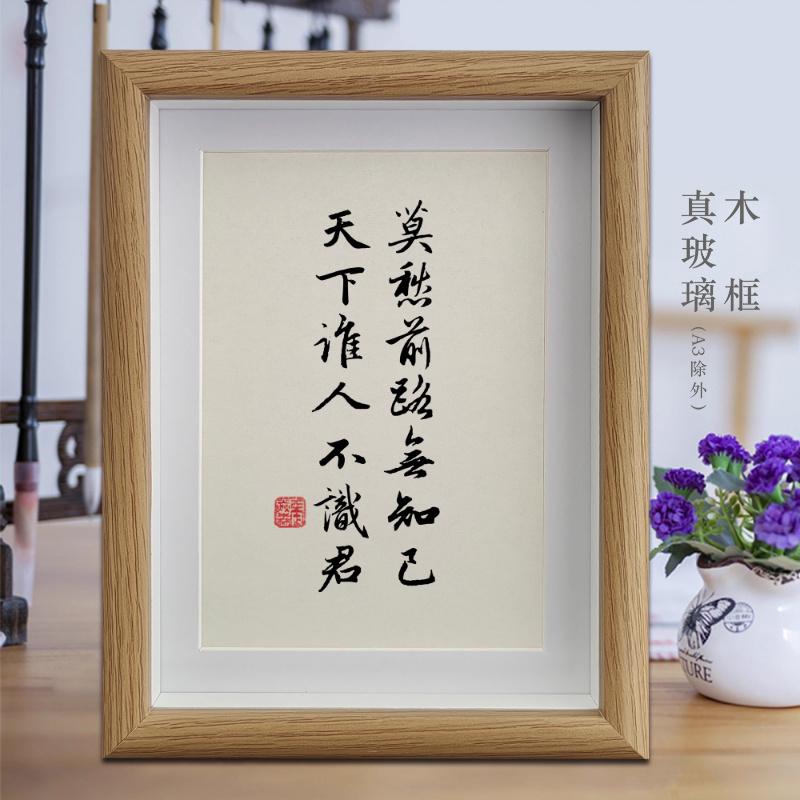 莫愁前路無知己
天下誰人不識君
木框
真玻璃(A3除外)